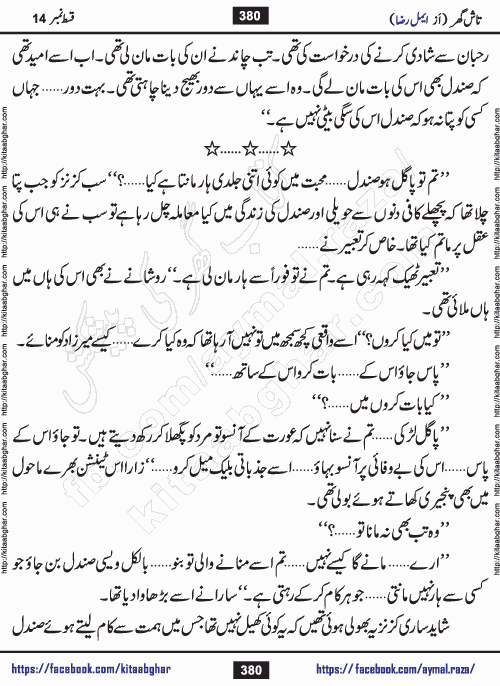 تاش گھر (از ایمل رضا)
380
قسط نمبر 14
رحبان سے شادی کرنے کی درخواست کی تھی۔ تب چاند نے ان کی بات مان لی تھی۔ اب اسے امید تھی
کہ صندل بھی اس کی بات مان لے گی۔ وہ اسے یہاں سے دور بھیج دینا چاہتی تھی۔ بہت دور...... جہاں
کسی کو پتا نہ ہو کہ صندل اس کی سگی بیٹی نہیں ہے۔‘‘
☆......☆......☆
’’تم تو پاگل ہو صندل...... محبت میں کوئی اتنی جلدی ہار مانتا ہے کیا......؟‘‘ سب کزنز کو جب پتا
چلا تھا کہ پچھلے کافی دنوں سے حویلی اور صندل کی زندگی میں کیا معاملہ چل رہا ہے تو سب نے ہی اس کی
عقل پر ماتم کیا تھا۔ خاص کر تعبیر نے......
’’تعبیر ٹھیک کہہ رہی ہے۔ تم نے تو فوراً سے ہار مان لی ہے۔‘‘ روشانے نے بھی اس کی ہاں میں
ہاں ملائی تھی۔
’’تو میں کیا کروں؟‘‘ اسے واقعی کچھ سمجھ میں تو نہیں آرہا تھا کہ وہ کیا کرے...... کیسے میرزاد کو منائے۔
’’پاس جاؤ اس کے...... بات کرو اس کے ساتھ......‘‘
’’کیا بات کروں میں......؟‘‘
’’پاگل لڑکی...... تم نے سنا نہیں کہ عورت کے آنسو تو مرد کو پگھلا کر رکھ دیتے ہیں۔ تو جاؤ اس کے
پاس...... اس کی بے وفائی پر آنسو بہاؤ...... اسے جذباتی بلیک میل کرو......‘‘ زارا اس ٹینشن بھرے ماحول
میں بھی پنجیری کھاتے ہوئے بولی تھی۔
’’وہ تب بھی نہ مانا تو......؟‘‘
’’ارے...... مانے گا کیسے نہیں...... تم اسے منانے والی تو بنو...... بالکل ویسی صندل بن جاؤ جو
کسی سے ہار نہیں مانتی...... جو ہر کام کر کے رہتی ہے۔‘‘ سارا نے اسے بڑھاوا دیا تھا۔
شاید ساری کزنز یہ بھولی ہوئی تھیں کہ یہ کوئی کھیل نہیں تھا جس میں ہمت سے کام لیتے ہوئے صندل
https://facebook.com/kitaabghar
380
https://facebook.com/aymal.raza/
http://kitaabghar.com http://kitaabghar.com http://kitaabghar.com http://kitaabghar.com http://kitaabghar.com
http://kitaabghar.com http://kitaabghar.com http://kitaabghar.com http://kitaabghar.com http://kitaabghar.com
کتاب گھر کی پیشکش
fb.com/aymal.raza/
kitaabghar.com